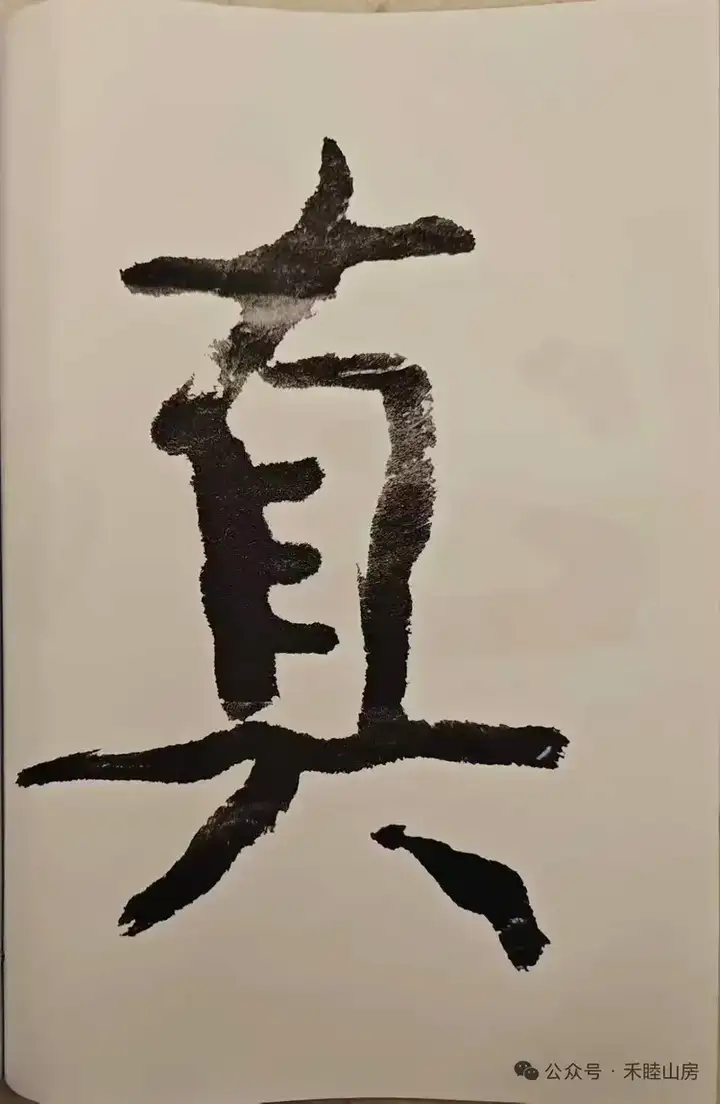 真
公众号 · 禾睦山房